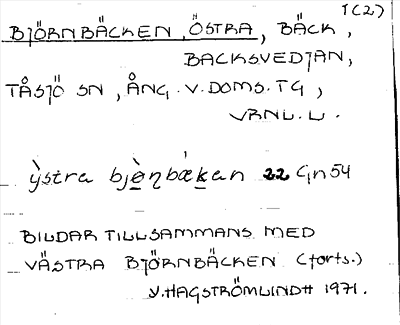 1(2)
BJÖRNBÄCKEN, ÖSTRA, BÄCK,
BACKSVEDJAN,
TÅSJÖ SN, ÅNG. V. DOMS. TG,
VRNL. L.
ỳstra bjèṇbækan 22 Gn 54
BILDAR TILLSAMMANS MED
VÄSTRA BJÖRNBÄCKEN (forts.)
Y. HAGSTRÖMLINDH 1971.